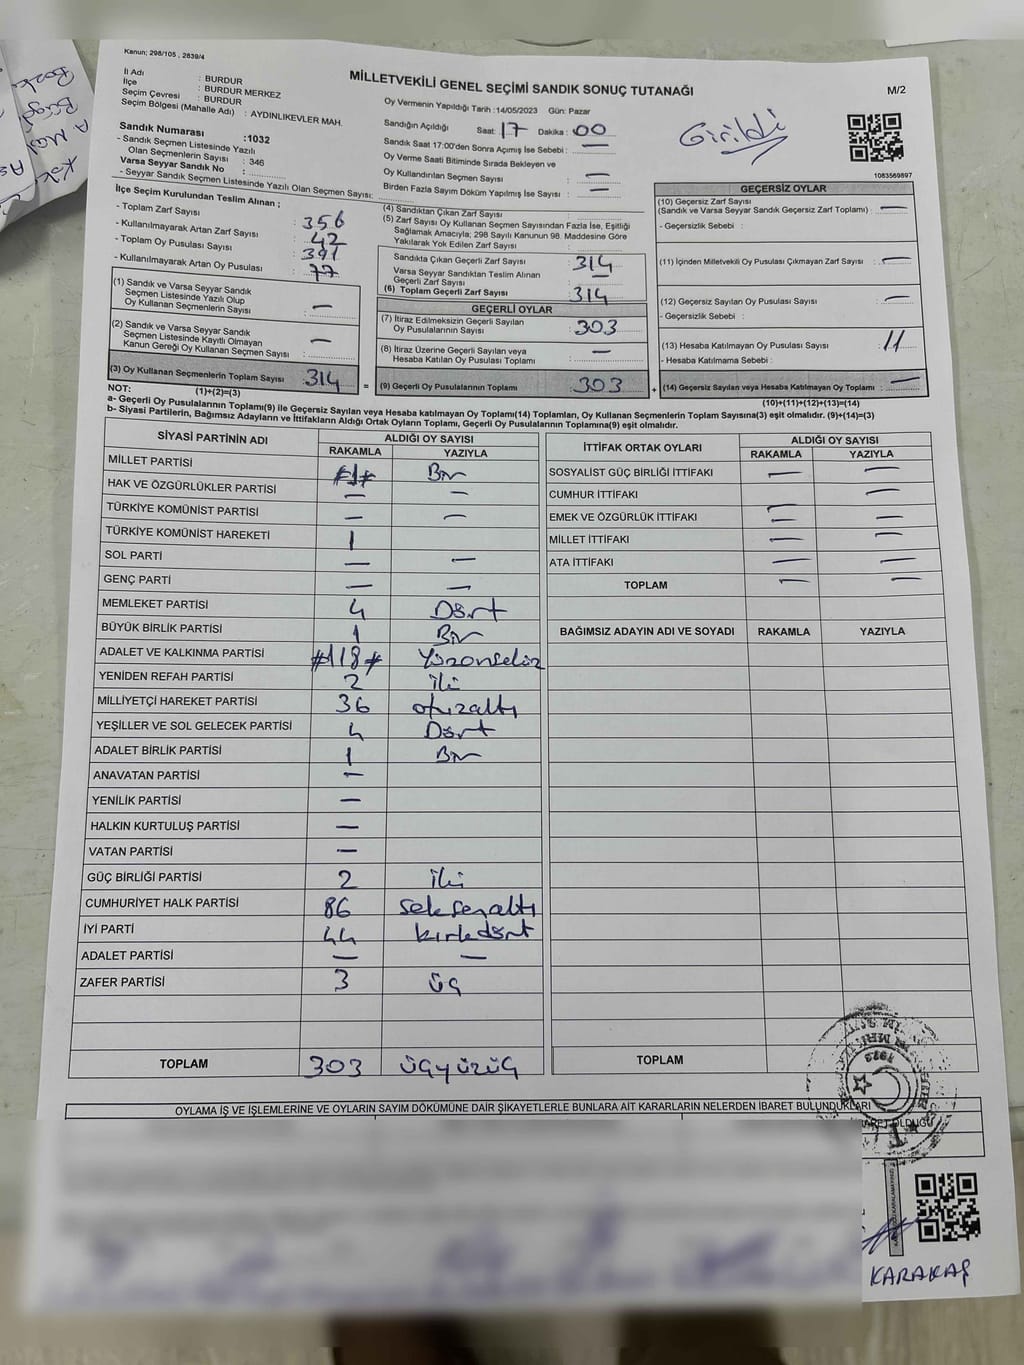 Kanun; 298/105 , 2839/4
MİLLETVEKİLİ GENEL SEÇİMİ SANDIK SONUÇ TUTANAĞI
M/2
İl Adı : BURDUR
İlçe : BURDUR MERKEZ
Seçim Çevresi : BURDUR
Seçim Bölgesi (Mahalle Adı) : AYDINLIKEVLER MAH.
Sandık Numarası :1032
- Sandık Seçmen Listesinde Yazılı
Olan Seçmenlerin Sayısı : 346
Varsa Seyyar Sandık No :
- Seyyar Sandık Seçmen Listesinde Yazılı Olan Seçmen Sayısı:
Oy Vermenin Yapıldığı Tarih :14/05/2023 Gün: Pazar
Sandığın Açıldığı Saat: 17 Dakika: 00
Sandık Saat 17:00'den Sonra Açımış İse Sebebi : —
Oy Verme Saati Bitiminde Sırada Bekleyen ve
Oy Kullandırılan Seçmen Sayısı : —
Birden Fazla Sayım Döküm Yapılmış İse Sayısı : —
Girildi
1083569897
İlçe Seçim Kurulundan Teslim Alınan ;
- Toplam Zarf Sayısı : 356
- Kullanılmayarak Artan Zarf Sayısı : 42
- Toplam Oy Pusulası Sayısı : 391
- Kullanılmayarak Artan Oy Pusulası : 77
(1) Sandık ve Varsa Seyyar Sandık
Seçmen Listesinde Yazılı Olup
Oy Kullanan Seçmenlerin Sayısı : —
(2) Sandık ve Varsa Seyyar Sandık
Seçmen Listesinde Kayıtlı Olmayan
Kanun Gereği Oy Kullanan Seçmen Sayısı : —
(3) Oy Kullanan Seçmenlerin Toplam Sayısı : 314
(1)+(2)=(3)
(4) Sandıktan Çıkan Zarf Sayısı :
(5) Zarf Sayısı Oy Kullanan Seçmen Sayısından Fazla İse, Eşitliği
Sağlamak Amacıyla; 298 Sayılı Kanunun 98. Maddesine Göre
Yakılarak Yok Edilen Zarf Sayısı :
Sandıkta Çıkan Geçerli Zarf Sayısı : 314
Varsa Seyyar Sandıktan Teslim Alınan
Geçerli Zarf Sayısı : —
(6) Toplam Geçerli Zarf Sayısı : 314
GEÇERLİ OYLAR
(7) İtiraz Edilmeksizin Geçerli Sayılan
Oy Pusulalarının Sayısı : 303
(8) İtiraz Üzerine Geçerli Sayılan veya
Hesaba Katılan Oy Pusulası Toplamı : —
= (9) Geçerli Oy Pusulalarının Toplamı : 303
GEÇERSİZ OYLAR
(10) Geçersiz Zarf Sayısı
(Sandık ve Varsa Seyyar Sandık Geçersiz Zarf Toplamı) : —
- Geçersizlik Sebebi :
(11) İçinden Milletvekili Oy Pusulası Çıkmayan Zarf Sayısı : —
(12) Geçersiz Sayılan Oy Pusulası Sayısı : —
- Geçersizlik Sebebi :
(13) Hesaba Katılmayan Oy Pusulası Sayısı : 11
- Hesaba Katılmama Sebebi :
+ (14) Geçersiz Sayılan veya Hesaba Katılmayan Oy Toplamı : —
(10)+(11)+(12)+(13)=(14)
NOT:
a- Geçerli Oy Pusulalarının Toplamı(9) ile Geçersiz Sayılan veya Hesaba katılmayan Oy Toplamı(14) Toplamları, Oy Kullanan Seçmenlerin Toplam Sayısına(3) eşit olmalıdır. (9)+(14)=(3)
b- Siyasi Partilerin, Bağımsız Adayların ve İttifakların Aldığı Ortak Oyların Toplamı, Geçerli Oy Pusulalarının Toplamına(9) eşit olmalıdır.
SİYASİ PARTİNİN ADI ALDIĞI OY SAYISI
RAKAMLA YAZIYLA
MİLLET PARTİSİ #1# Bir
HAK VE ÖZGÜRLÜKLER PARTİSİ — —
TÜRKİYE KOMÜNİST PARTİSİ — —
TÜRKİYE KOMÜNİST HAREKETİ 1
SOL PARTİ — —
GENÇ PARTİ — —
MEMLEKET PARTİSİ 4 Dört
BÜYÜK BİRLİK PARTİSİ 1 Bir
ADALET VE KALKINMA PARTİSİ #118# Yüzonsekiz
YENİDEN REFAH PARTİSİ 2 İki
MİLLİYETÇİ HAREKET PARTİSİ 36 otuzaltı
YEŞİLLER VE SOL GELECEK PARTİSİ 4 Dört
ADALET BİRLİK PARTİSİ 1 Bir
ANAVATAN PARTİSİ —
YENİLİK PARTİSİ —
HALKIN KURTULUŞ PARTİSİ —
VATAN PARTİSİ —
GÜÇ BİRLİĞİ PARTİSİ 2 İki
CUMHURİYET HALK PARTİSİ 86 seksenaltı
İYİ PARTİ 44 kırkdört
ADALET PARTİSİ — —
ZAFER PARTİSİ 3 üç
TOPLAM 303 üçyüzüç
İTTİFAK ORTAK OYLARI ALDIĞI OY SAYISI
RAKAMLA YAZIYLA
SOSYALİST GÜÇ BİRLİĞİ İTTİFAKI — —
CUMHUR İTTİFAKI —
EMEK VE ÖZGÜRLÜK İTTİFAKI — —
MİLLET İTTİFAKI — —
ATA İTTİFAKI — —
TOPLAM — —
BAĞIMSIZ ADAYIN ADI VE SOYADI RAKAMLA YAZIYLA
TOPLAM
OYLAMA İŞ VE İŞLEMLERİNE VE OYLARIN SAYIM DÖKÜMÜNE DAİR ŞİKAYETLERLE BUNLARA AİT KARARLARIN NELERDEN İBARET BULUNDUKLARI
KARAKAŞ